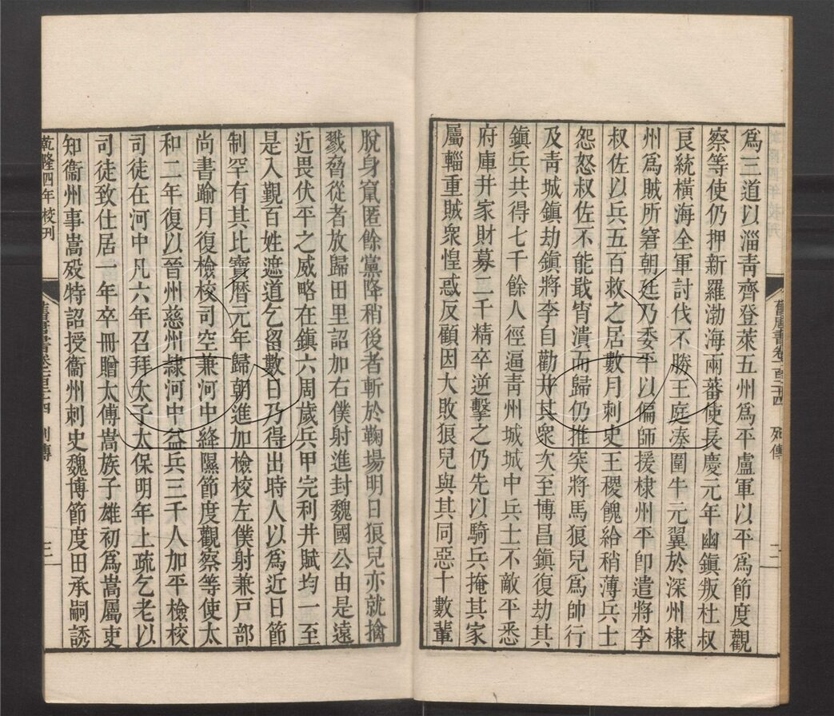 爲三道以淄青齊登萊五州爲平盧軍以平爲節度觀
察等使仍押新羅渤海兩蕃使長慶元年幽鎭叛杜叔
良統橫海全軍討伐不勝王庭湊圍牛元翼於深州棣
州爲賊所窘朝廷乃委平以偏師援棣州平卽遣將李
叔佐以兵五百救之居數月刺史王稷餽給稍薄兵士
怨怒叔佐不能戢宵潰而歸仍推突將馬狼兒爲帥行
及靑城鎭劫鎭將李自勸幷其衆次至博昌鎭復劫其
鎭兵共得七千餘人徑逼青州城城中兵士不敵平悉
府庫幷家財募二千精卒逆擊之仍先以騎兵掩其家
屬輜重賊衆惶惑反顧因大敗狼兒與其同惡十數輩
舊唐書卷一百二十四 列傳
二
脫身竄匿餘黨降稍後者斬於鞠場明日狼兒亦就擒
戮脅從者放歸田里詔加右僕射進封魏國公由是遠
近畏伏平之威略在鎭六周歲兵甲完利井賦均一至
是入觀百姓遮道乞留數日乃得出時人以爲近日節
制罕有其比寶曆元年歸朝進加檢校左僕射兼戸部
尚書踰月復檢校司空兼河中絳隰節度觀察等使太
和二年復以晉州慈州隸河中益兵三千人加平檢校
司徒在河中凡六年召拜太子太保明年上疏乞老以
司徒致仕居一年卒冊贈太傅嵩族子雄初爲嵩屬吏
知衞州事嵩歿特詔授衞州刺史魏博節度田承嗣誘
乾隆四年校刊
舊唐書卷一百二十四 列傳
三